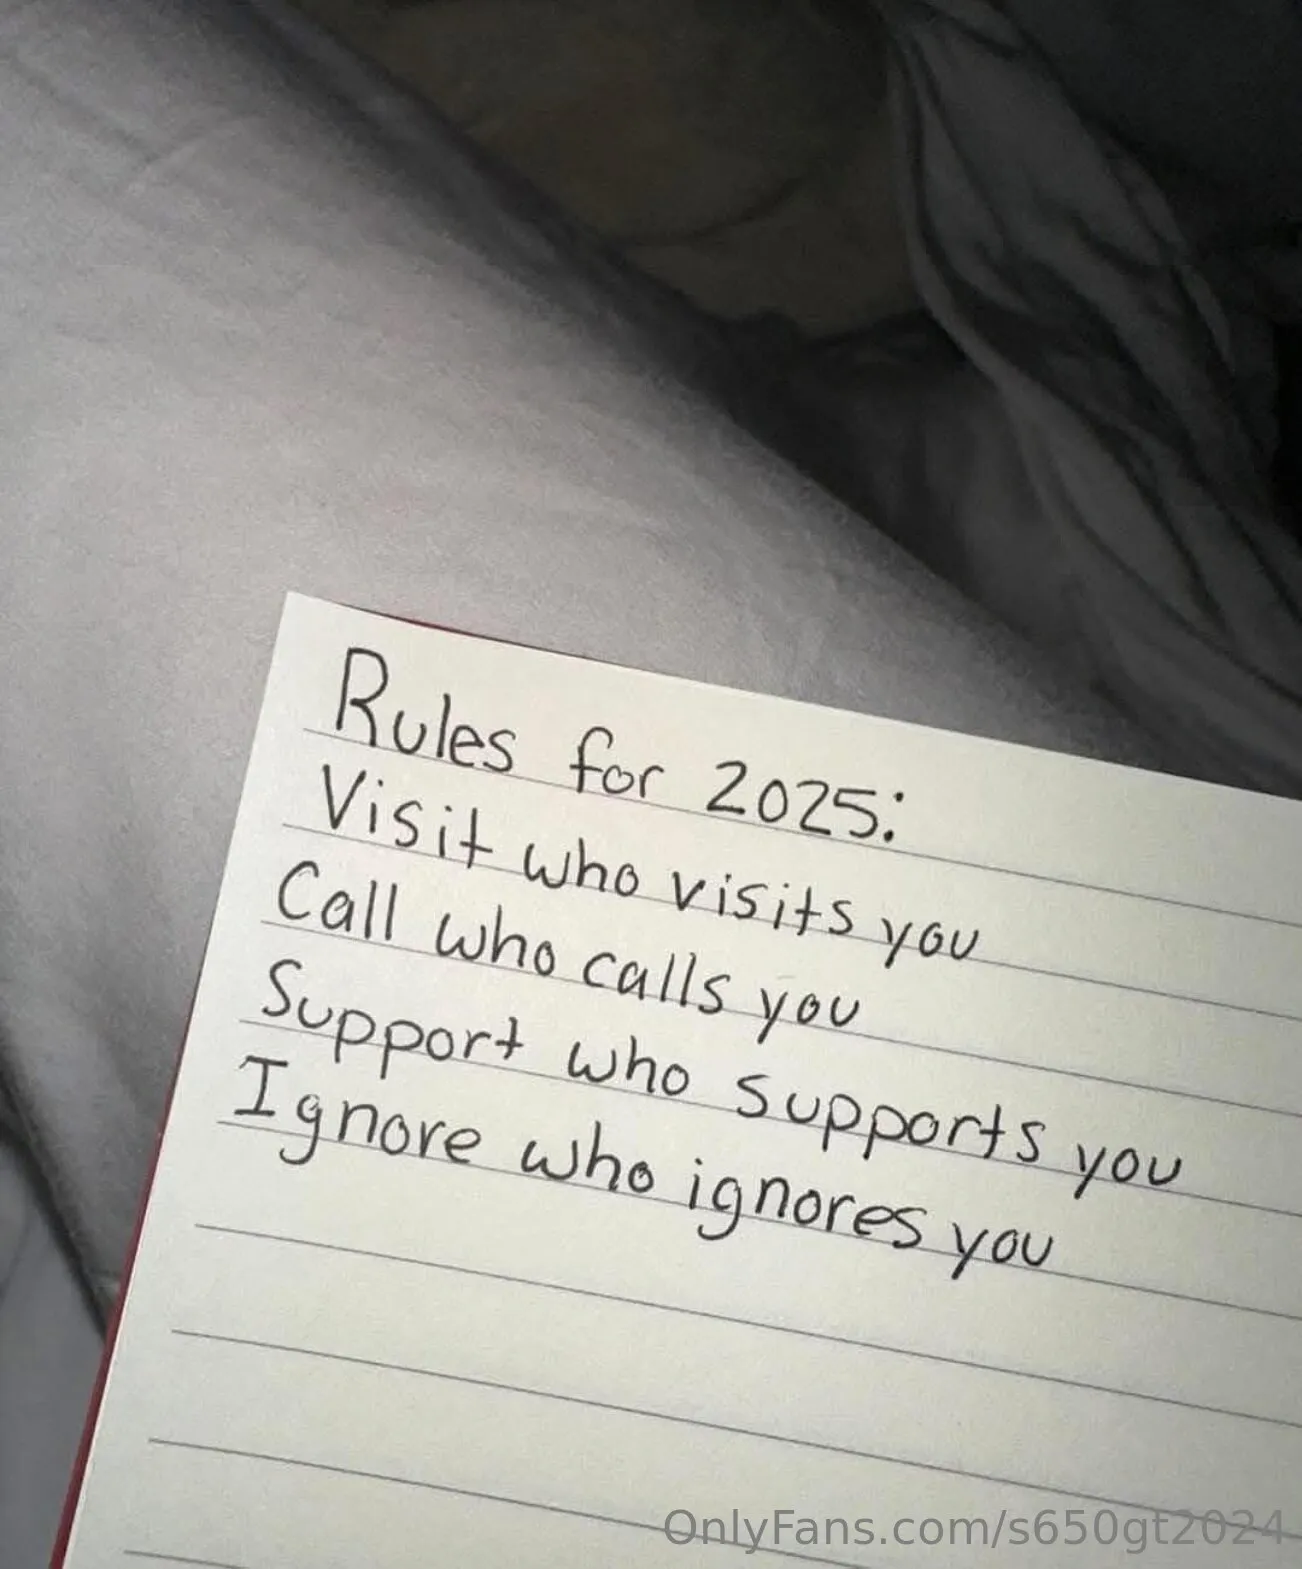 Rules for 2025:
Visit who visits you
Call who calls you
Support who supports you
Ignore who ignores you
OnlyFans.com/s650gt2024